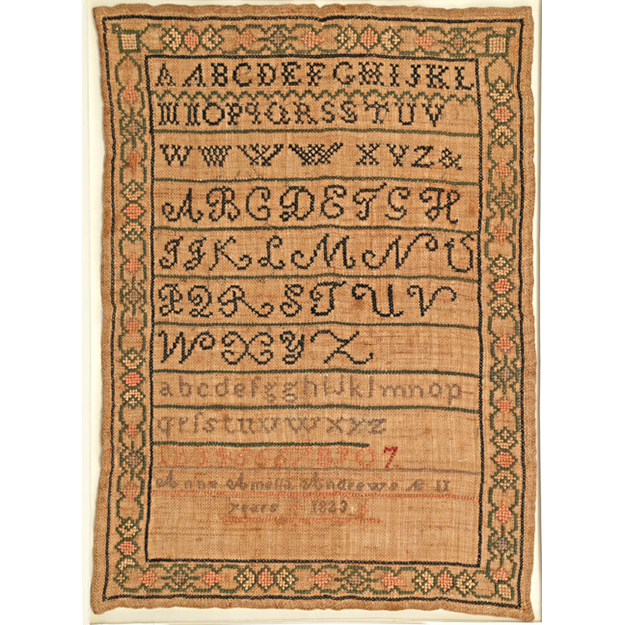 AABCDEFGHIJKL
MNOPQRSSTUV
WWWW XYZ&
ABCDETGH
IJKLMNU
PQRSTUV
WXYZ
abcdefgghijklmnop
qrſstuvwxyz
7
Anna Ameli Andrews Æ 11
years 1823